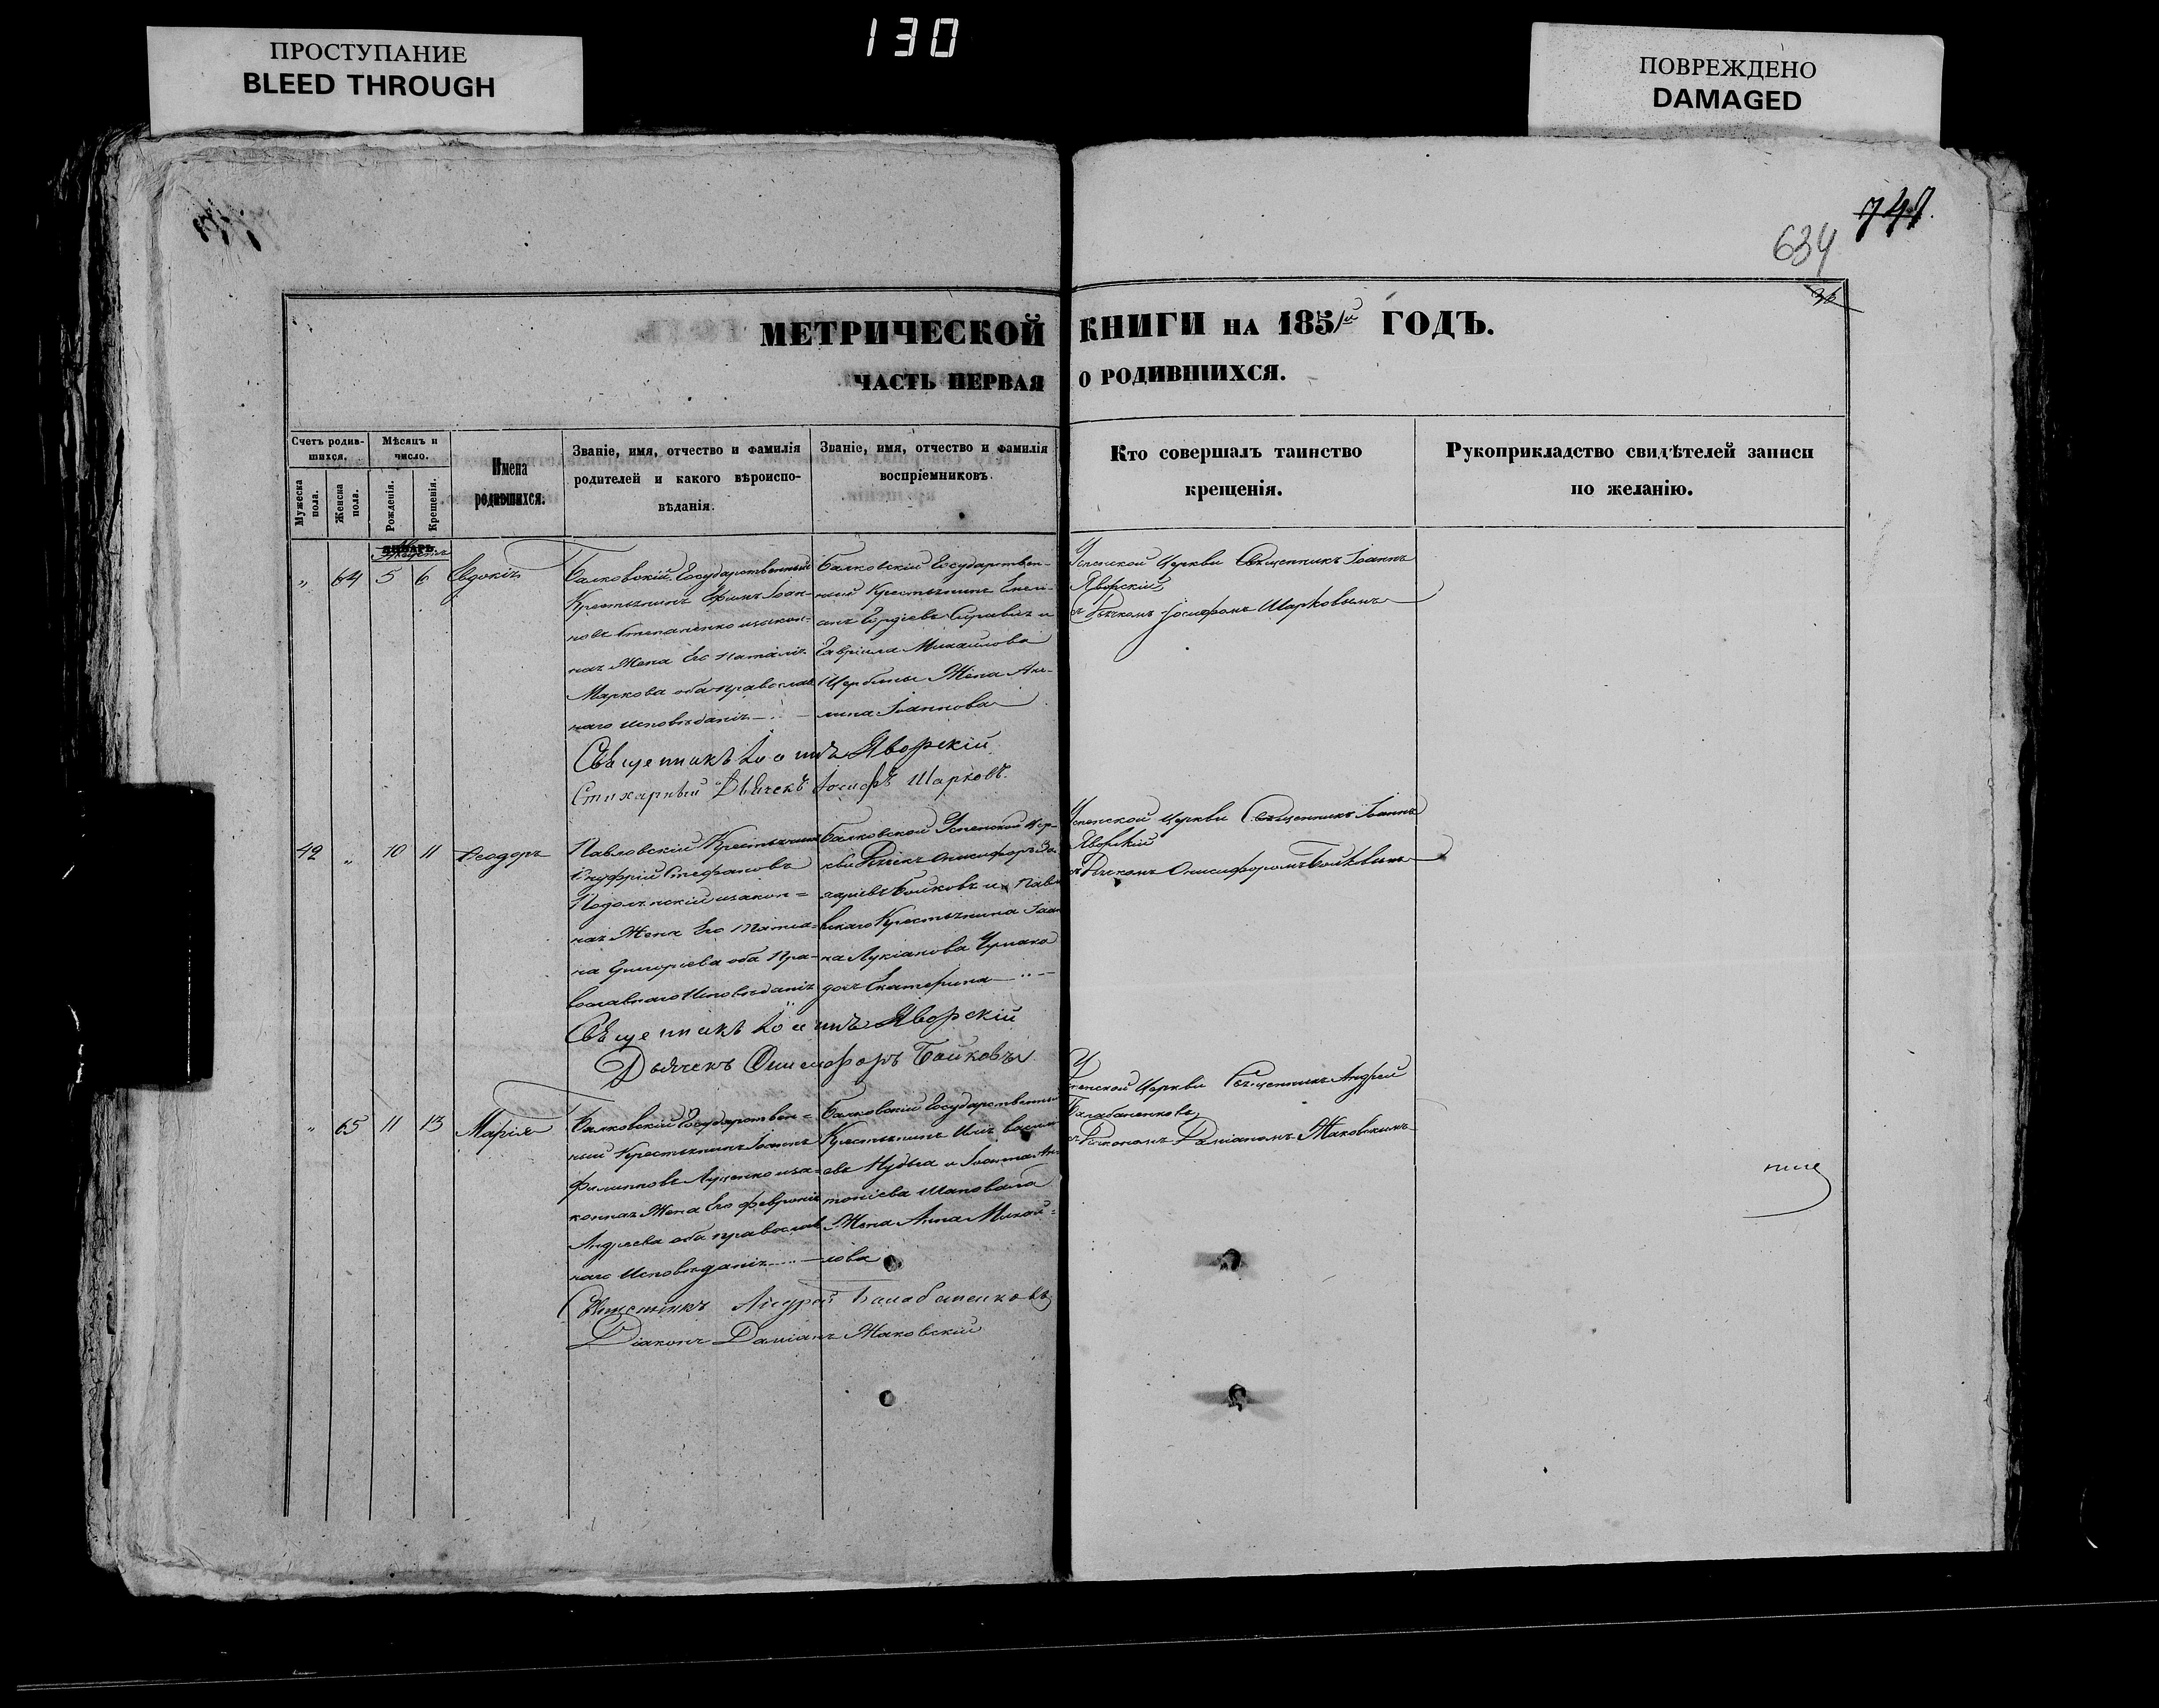 130
ПРОСТУПАНИЕ
BLEED THROUGH
ПОВРЕЖДЕНО
DAMAGED
747.
634
МЕТРИЧЕСКОЙ КНИГИ НА 1851й ГОДЪ.
ЧАСТЬ ПЕРВАЯ О РОДИВШИХСЯ.
Счетъ родив-
шихся.
Мужеска
пола.
Женска
пола.
Мѣсяцъ и
число.
Рожденія.
Крещенія.
Имена
родившихся.
Званіе, имя, отчество и фамилія
родителей и какого вѣроиспо-
вѣданія.
Званіе, имя, отчество и фамилія
воспріемниковъ.
Кто совершалъ таинство
крещенія.
Рукоприкладство свидѣтелей записи
по желанію.
ЯНВАРЬ.
„ 64 5 6 Евдокія
Балковскій Государственный
Крестьянинъ Ефимъ Іоан-
новъ Степаненко изакон-
ная Жена Его Наталія
Маркова оба православ
наго исповѣданія
Балковскій Государствен-
ный Крестьянинъ
Гавріила Михайлова
Щербины Жена Аку-
лина Іоаннова
Успенской Церкви Священникъ Іоаннъ
Яворскій
съ Дьячкомъ Іосифомъ Шарковымъ
Священникъ Іоаннъ Яворскій
Стихарный Дьячекъ Іосифъ Шарковъ.
42 „ 10 11 Ѳеодоръ
Павловскій Крестьянинъ
Онуфрій Стефановъ
Подолянскій изакон=
ная Жена Его Татіа=
на Григоріева оба Пра-
вославнаго Исповѣданія
Балковской Успенской Цер-
кви Дьячекъ Онисифоръ За-
харіевъ Бойковъ и Павло
вскаго Крестьянина Іоан
на Лукіанова Чумака
дочь Екатерина
Успенской Церкви Священникъ Іоаннъ
Яворскій
съ Дьячкомъ Онисифоромъ Бойковымъ
Священникъ Іоаннъ Яворскій
Дьячекъ Онисифоръ Бойковъ
„ 65 11 13 Марія
Балковскій Государствен=
ный Крестьянинъ Іоаннъ
Филипповъ Луценко иза=
конная Жена Его Февронія
Андреева оба православ
наго Исповѣданія
Балковскій Государственный
Крестьянинъ Илія Васильи
евъ Нудьга и Іоанна Ан-
тоніева Шаповала
Жена Анна Михай=
лова
Успенской Церкви Священникъ Андрей
Балабаненковъ
съ Діакономъ Даміаномъ Маковскимъ
Священникъ Андрей Балабаненковъ
Діаконъ Даміанъ Маковскій